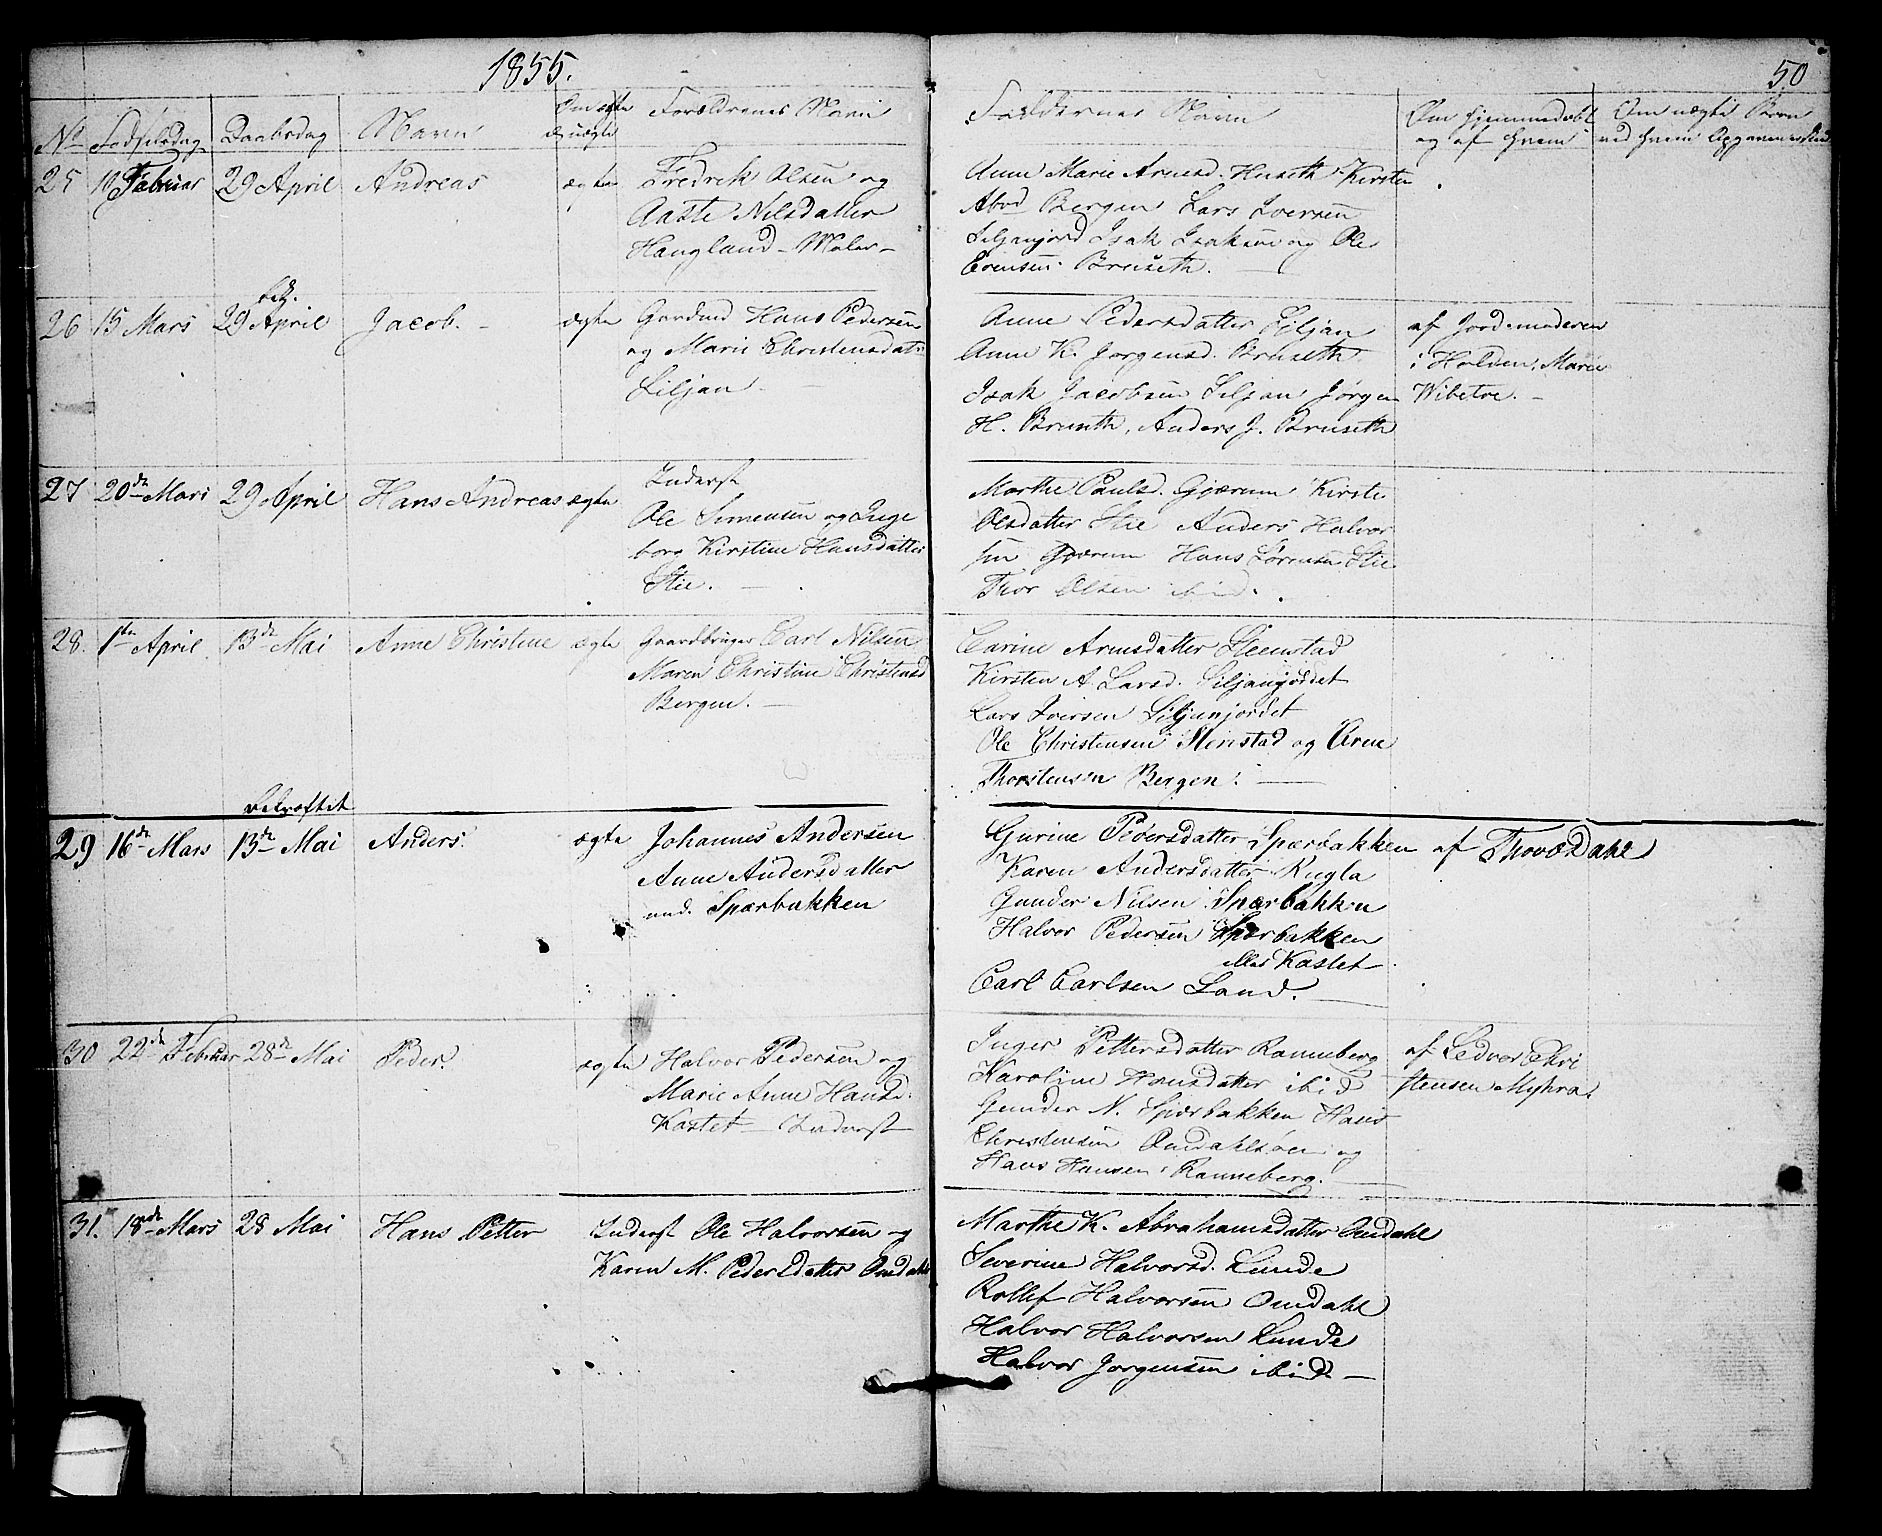 1855.
50
No Fødselsdag Daabsdag Navn Om ægte el. uægte Forældrenes Navn Faddernes Navn Om hjemmedøbt og af hvem Om uægte Børn
25 10 Februar 29 April Andreas ægte Fredrik Olsen og
Aaste Nilsdatter
Haugland - Maler -
Anne Marie Arnesd. Huseth Kirsten
Bergen Lars Iversen
Siljanjord Isak Isaksen og Ole
Evensen Bruseth.
bekr.
26 15 Mars 29 April Jacob. - ægte Gaardmd Hans Pedersen
og Marie Christensdat:
Siljan. -
Anne Pedersdatter Siljan
Anne K. Jørgensd. Bruseth
Isak Jacobsen Siljan Jørgen
H. Bruseth, Anders J. Bruseth
af Jordemoderen
i Holden, Marie
Wibetoe. -
27 20de Mars 29 April Hans Andreas ægte Inderst
Ole Simensen og Inge
borg Kirstine Hansdatter
Stie. -
Marthe Paulsd. Gjærum Kirste
Olsdatter Stie Anders Halvor
sen Gjærum Hans Sørensen Stie
Thor Olsen ibid.
28. 1ste April 13de Mai Anne Christine ægte Gaardbruger Carl Nilsen
Maren Christine Christensd
Bergen. -
Carine Arnesdatter Steenstad
Kirsten A. Larsd. Siljanjordet
Lars Iversen Siljanjordet
Ole Christensen Stenstad og Arne
Thorstensen Bergen. -
bekræftet
29 16de Mars 13de Mai Anders. ægte Johannes Andersen
Anne Andersdatter
und. Spærbakken
Gurine Pedersdatter Spærbakken
Karen Andersdatter Kugla
Gunder Nilsen Spærbakken
Halvor Pedersen Spærbakken
eller Kastet
Carl Carlsen Land. -
af Thovæ Dahl
30 22de Februar 28de Mai Peder. ægte Halvor Pedersen og
Marie Anne Hansd.
Kastet - Inderst
Inger Pettersdatter Ranneberg
Karoline Hansdatter ibid
Gunder N. Spærbakken Hans
Christensen Omdahlsøen og
Hans Hansen Ranneberg. -
af Sedvor Chri
stensen Myhra.
31. 18de Mars 28 Mai Hans Petter Inderst Ole Halvorsen og
Karen M. Pedersdatter Omdahl
Marthe K. Abrahamsdatter Omdahl
Severine Halvorsd. Lunde
Rollef Halvorsen Omdahl
Halvor Halvorsen Lunde
Halvor Jørgensen ibid -